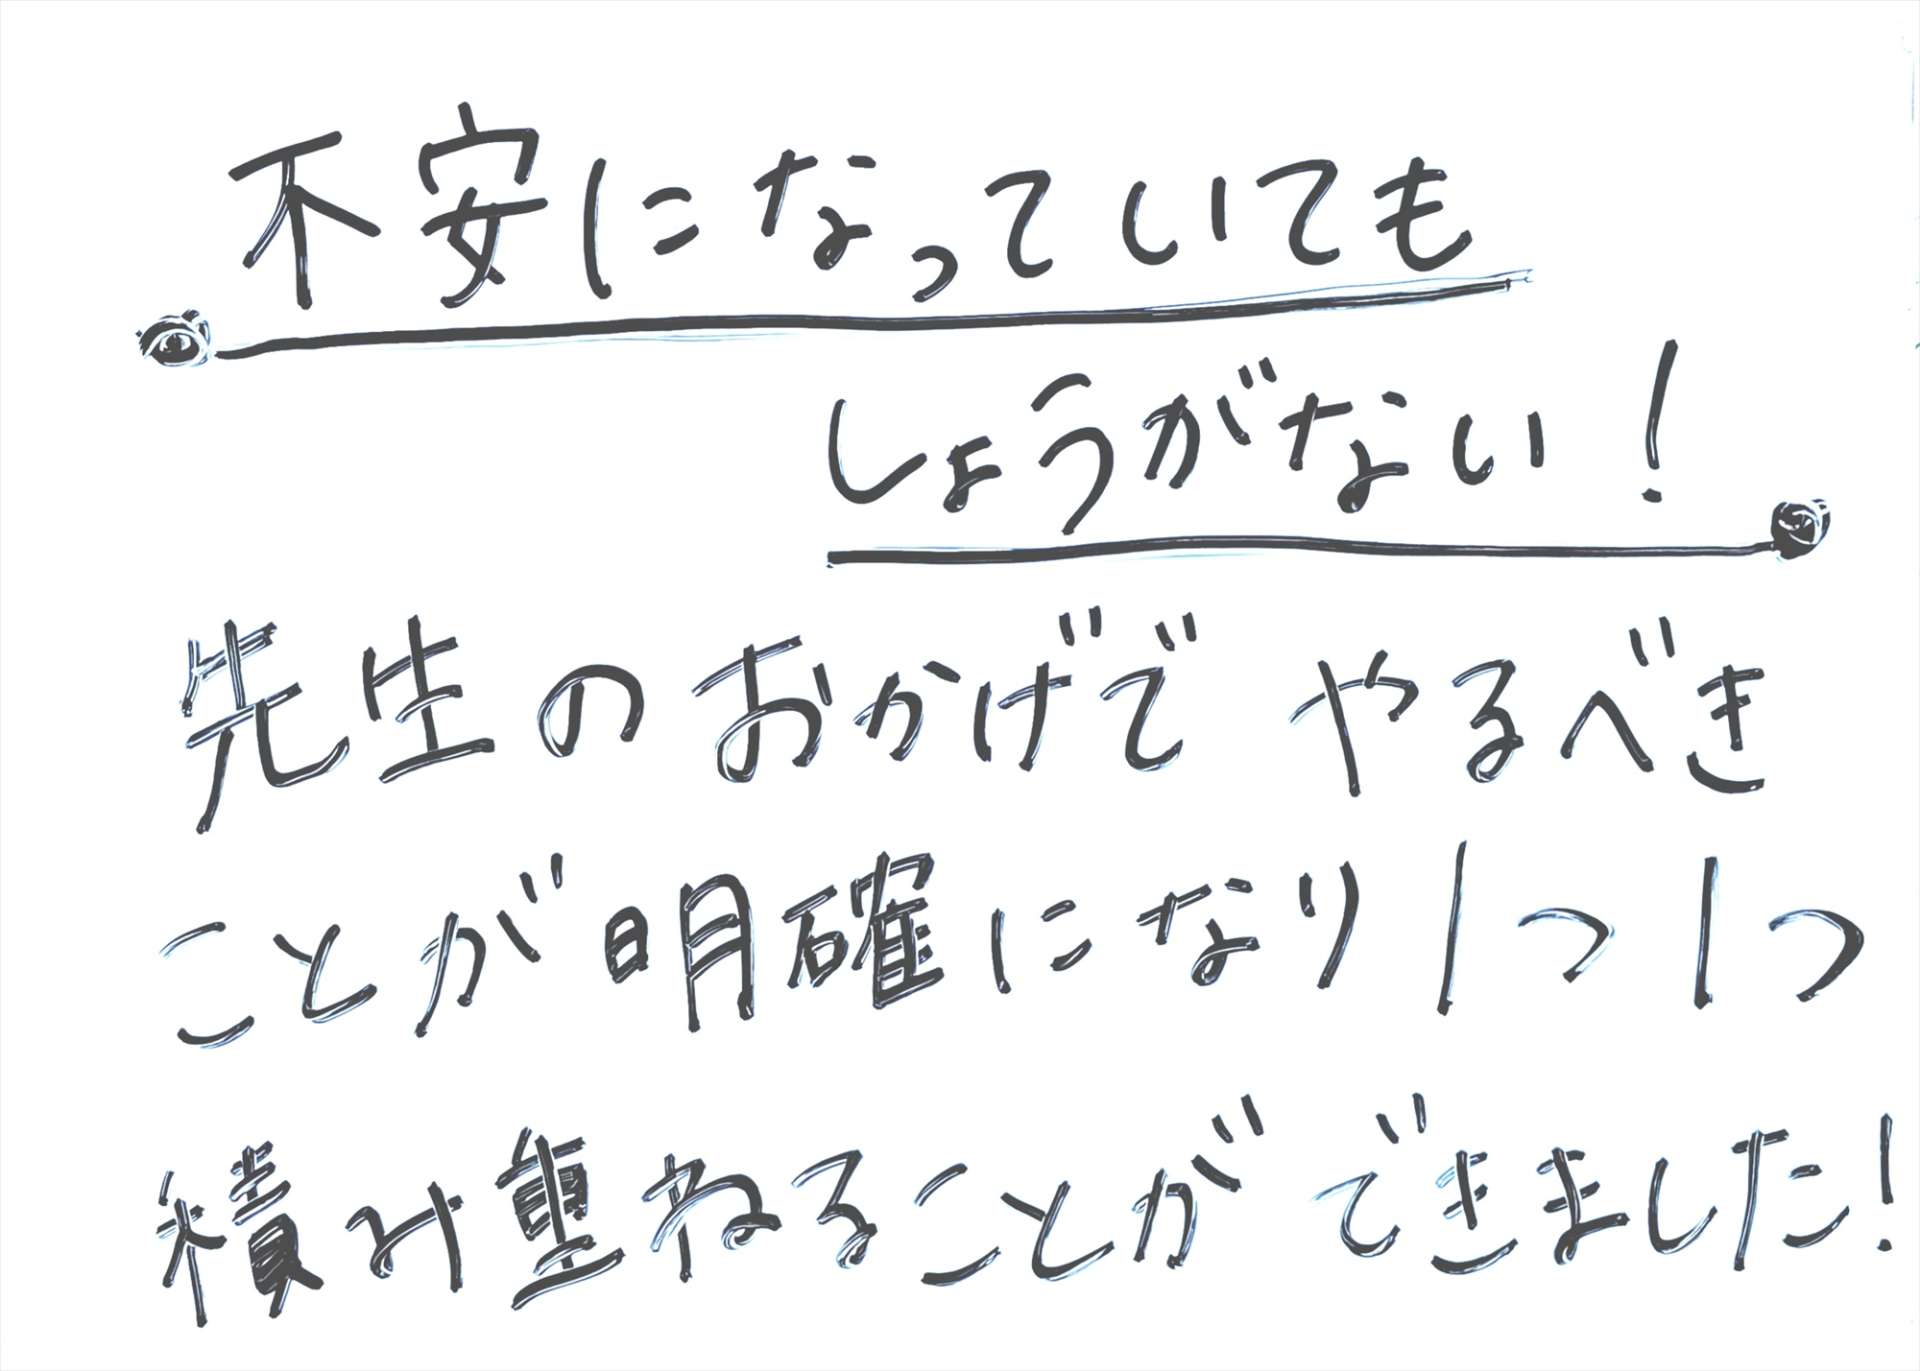 不安になっていても
しょうがない！
先生のおかげで やるべき
ことが明確になり1つ1つ
積み重ねることができました！